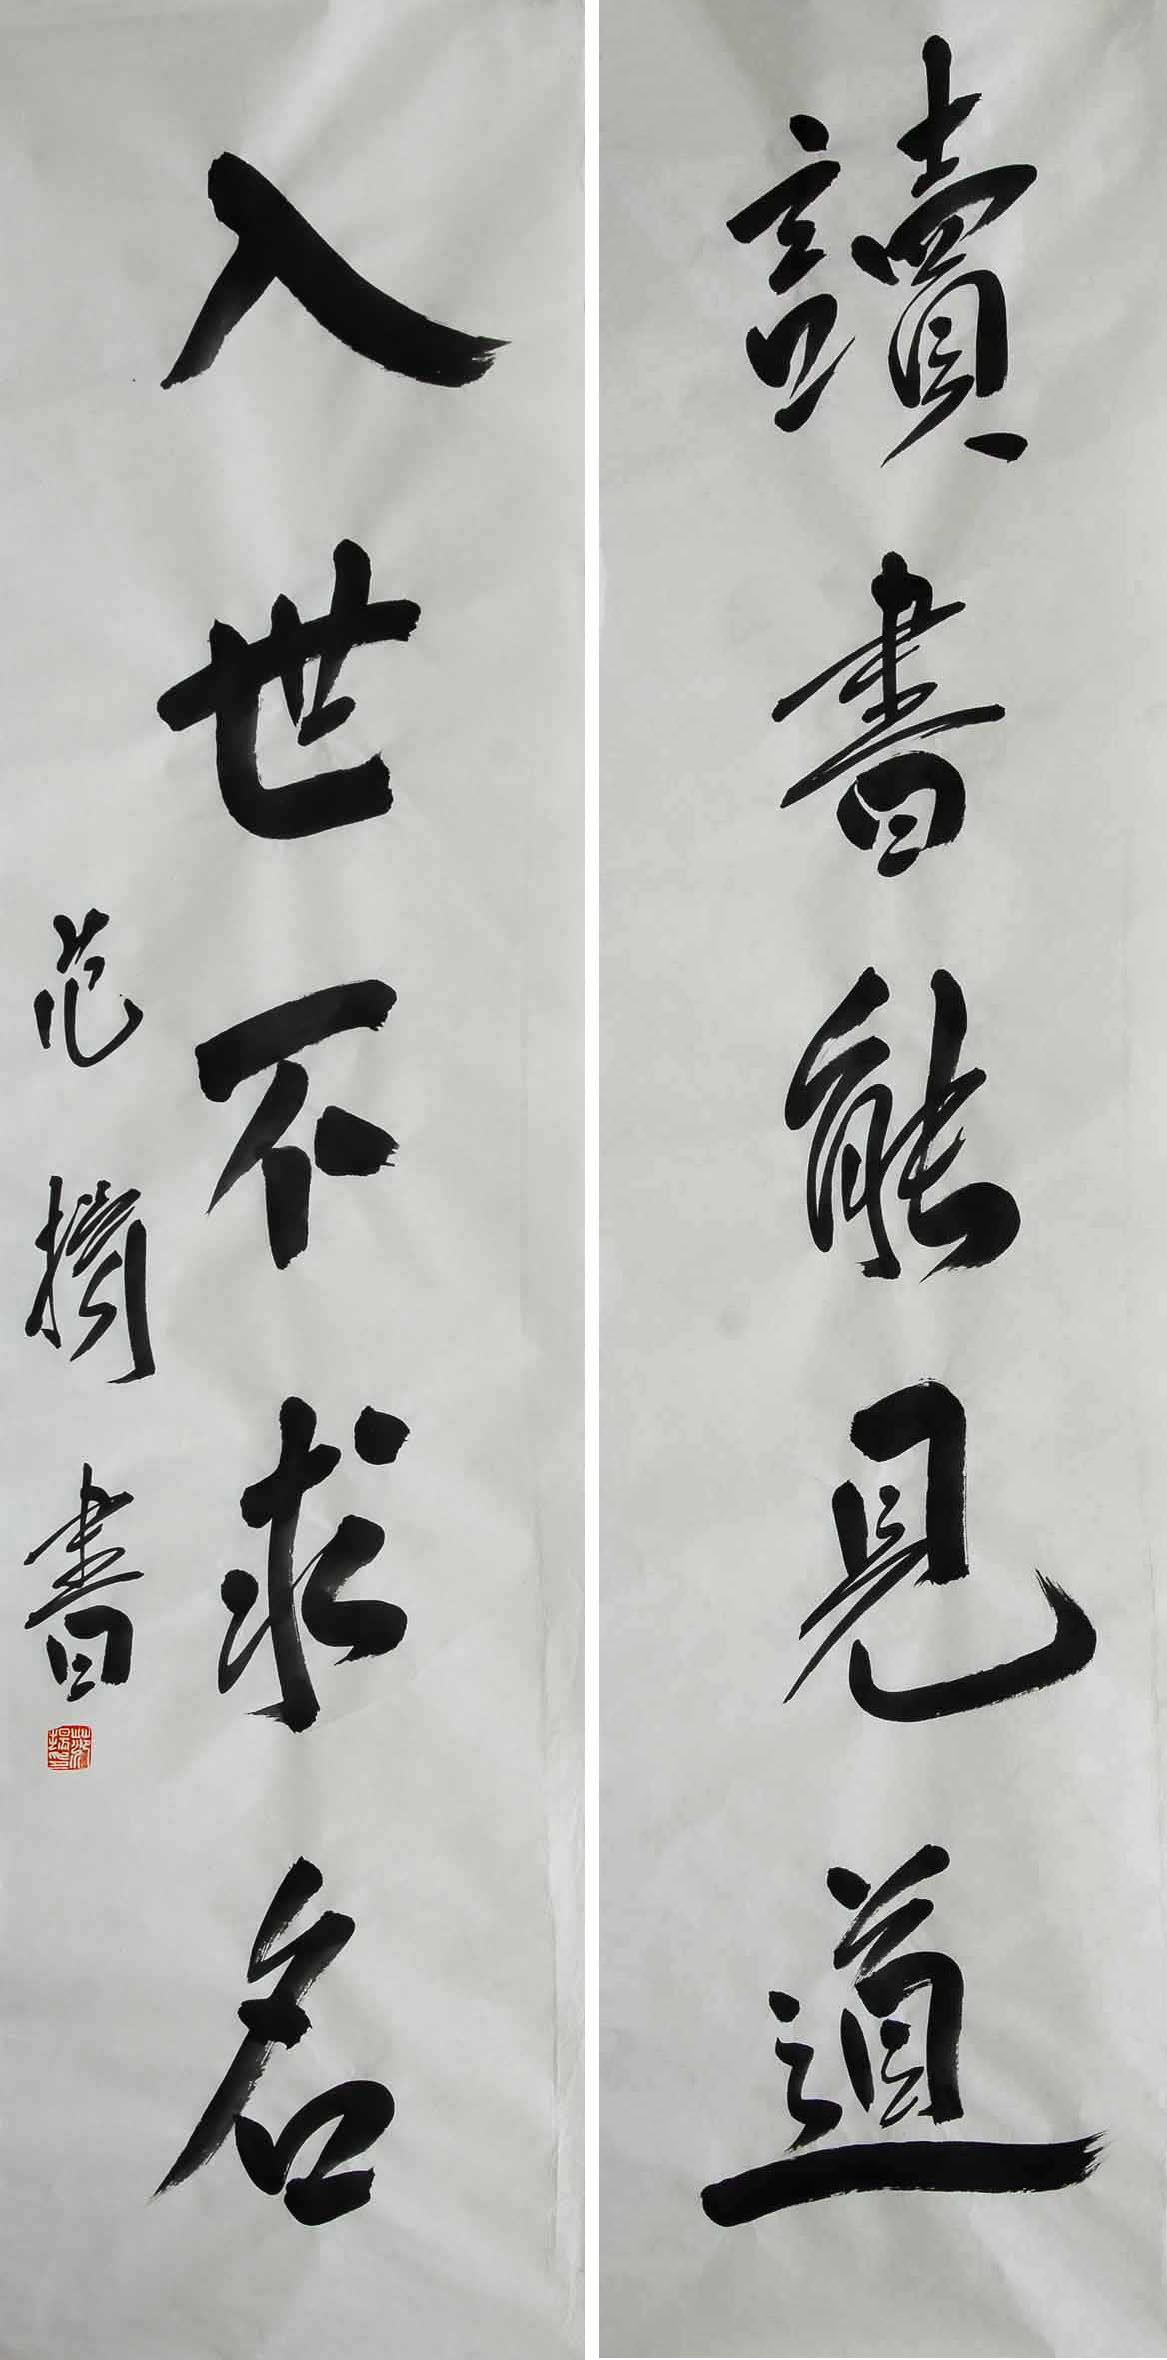 讀書能見道
入世不求名
范 書